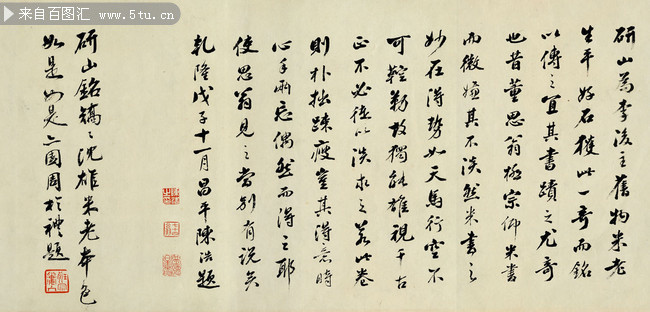 来自百图汇
www.5tu.cn
研山為李後主舊物米老
生平好石獲此一奇而銘
以傳之宜其書蹟之尤奇
也昔董思翁極宗仰米書
而微嫌其不淡然米書之
妙在得勢如天馬行空不
可羈勒故獨能雄視千古
正不必徒以淡求之若此卷
則朴拙疎瘦豈其得意時
心手兩忘偶然而得之耶
使思翁見之當別有說矣
乾隆戊子十一月昌平陳浩題
研山銘矯矯沈雄米老本色
如是如是 周於禮題